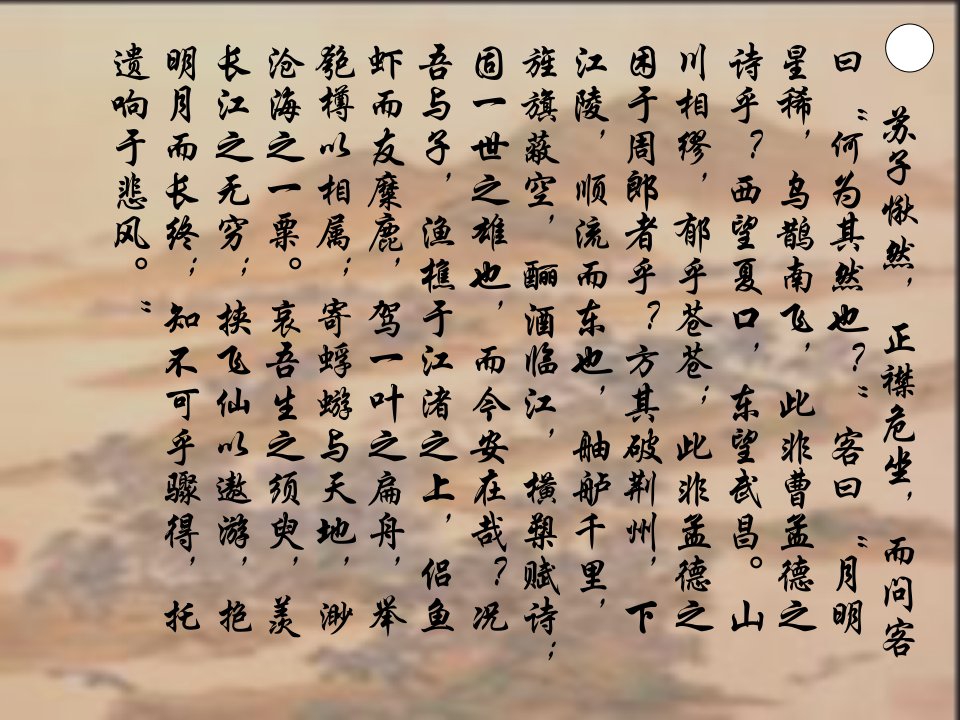 苏子愀然，正襟危坐，而问客
曰：“何为其然也？”客曰：“月明
星稀，乌鹊南飞，此非曹孟德之
诗乎？西望夏口，东望武昌。山
川相缪，郁乎苍苍；此非孟德之
困于周郎者乎？方其破荆州，下
江陵，顺流而东也，舳舻千里，
旌旗蔽空，酾酒临江，横槊赋诗；
固一世之雄也，而今安在哉？况
吾与子，渔樵于江渚之上，侣鱼
虾而友糜鹿，驾一叶之扁舟，举
匏樽以相属；寄蜉蝣与天地，渺
沧海之一粟。哀吾生之须臾，羡
长江之无穷；挟飞仙以遨游，抱
明月而长终；知不可乎骤得，托
遗响于悲风。”